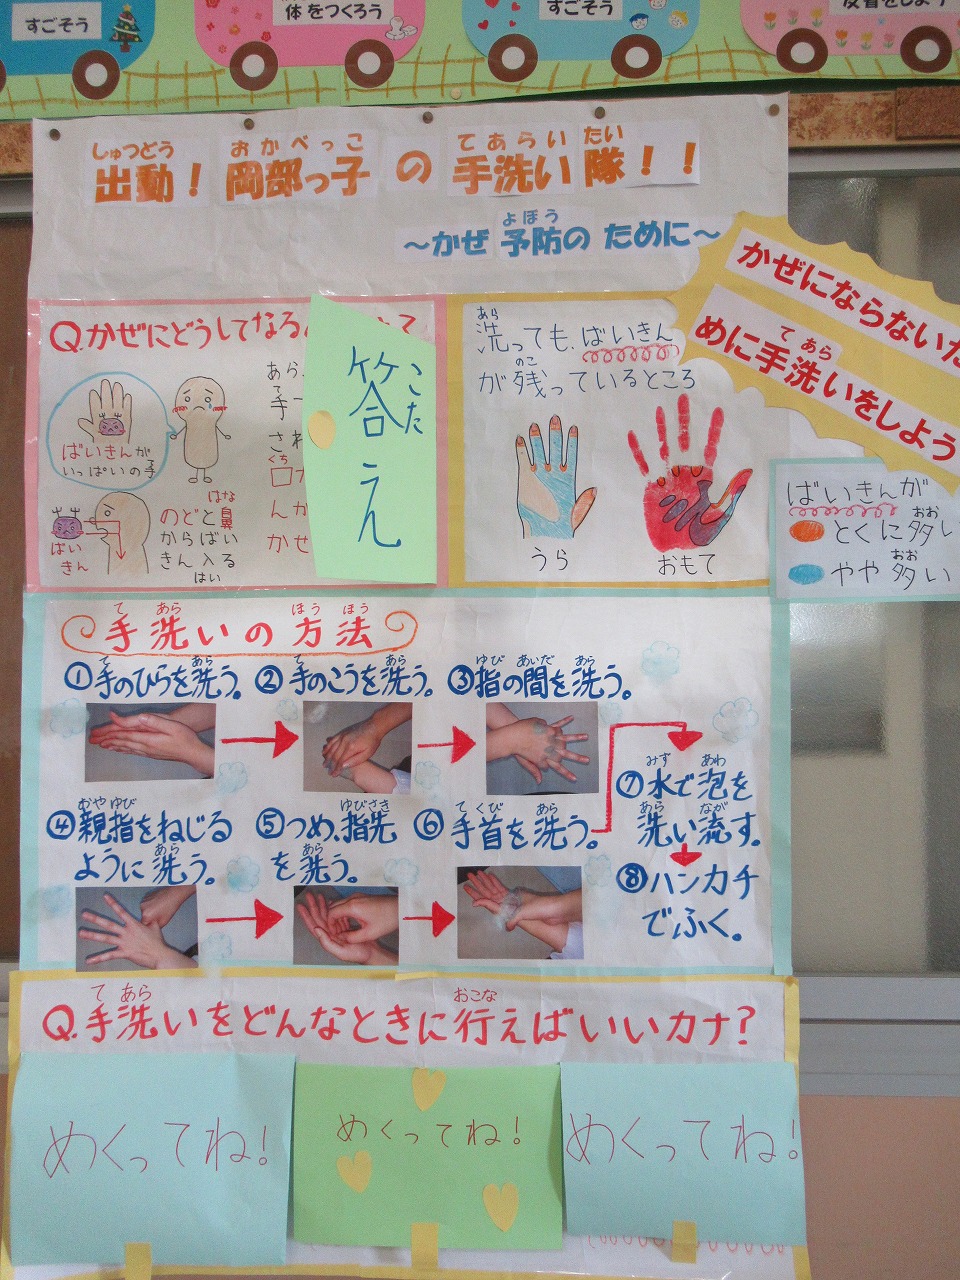 すごそう
体をつくろう
すごそう
しゅつどう おかべっこ てあらい たい
出動！ 岡部っ子 の 手洗い 隊！！
よぼう
～かぜ 予防の ために～
かぜにならないた
てあら
めに手洗いをしよう
Q.かぜにどうしてなる
ばいきんが
いっぱいの手
ばい
きん
はな
のどと鼻
からばい
きん入る
はい
あら
て
手
くち
口
んか
かぜ
こた
答え
あら
洗っても、ばいきん
のこ
が残っているところ
うら
おもて
ばいきんが
おお
とくに多い
おお
やや多い
て あら ほう ほう
手洗いの方法
て あら
①手のひらを洗う。
て あら
②手のこうを洗う。
ゆび あいだ あら
③指の間を洗う。
おやゆび
④親指をねじる
あら
ように洗う。
ゆびさき
⑤つめ、指先
あら
を洗う。
てくび あら
⑥手首を洗う。
みず あわ
⑦水で泡を
あら なが
洗い流す。
⑧ハンカチ
でふく。
て あら おこな
Q.手洗いをどんなときに行えばいいカナ？
めくってね！
めくってね！
めくってね！